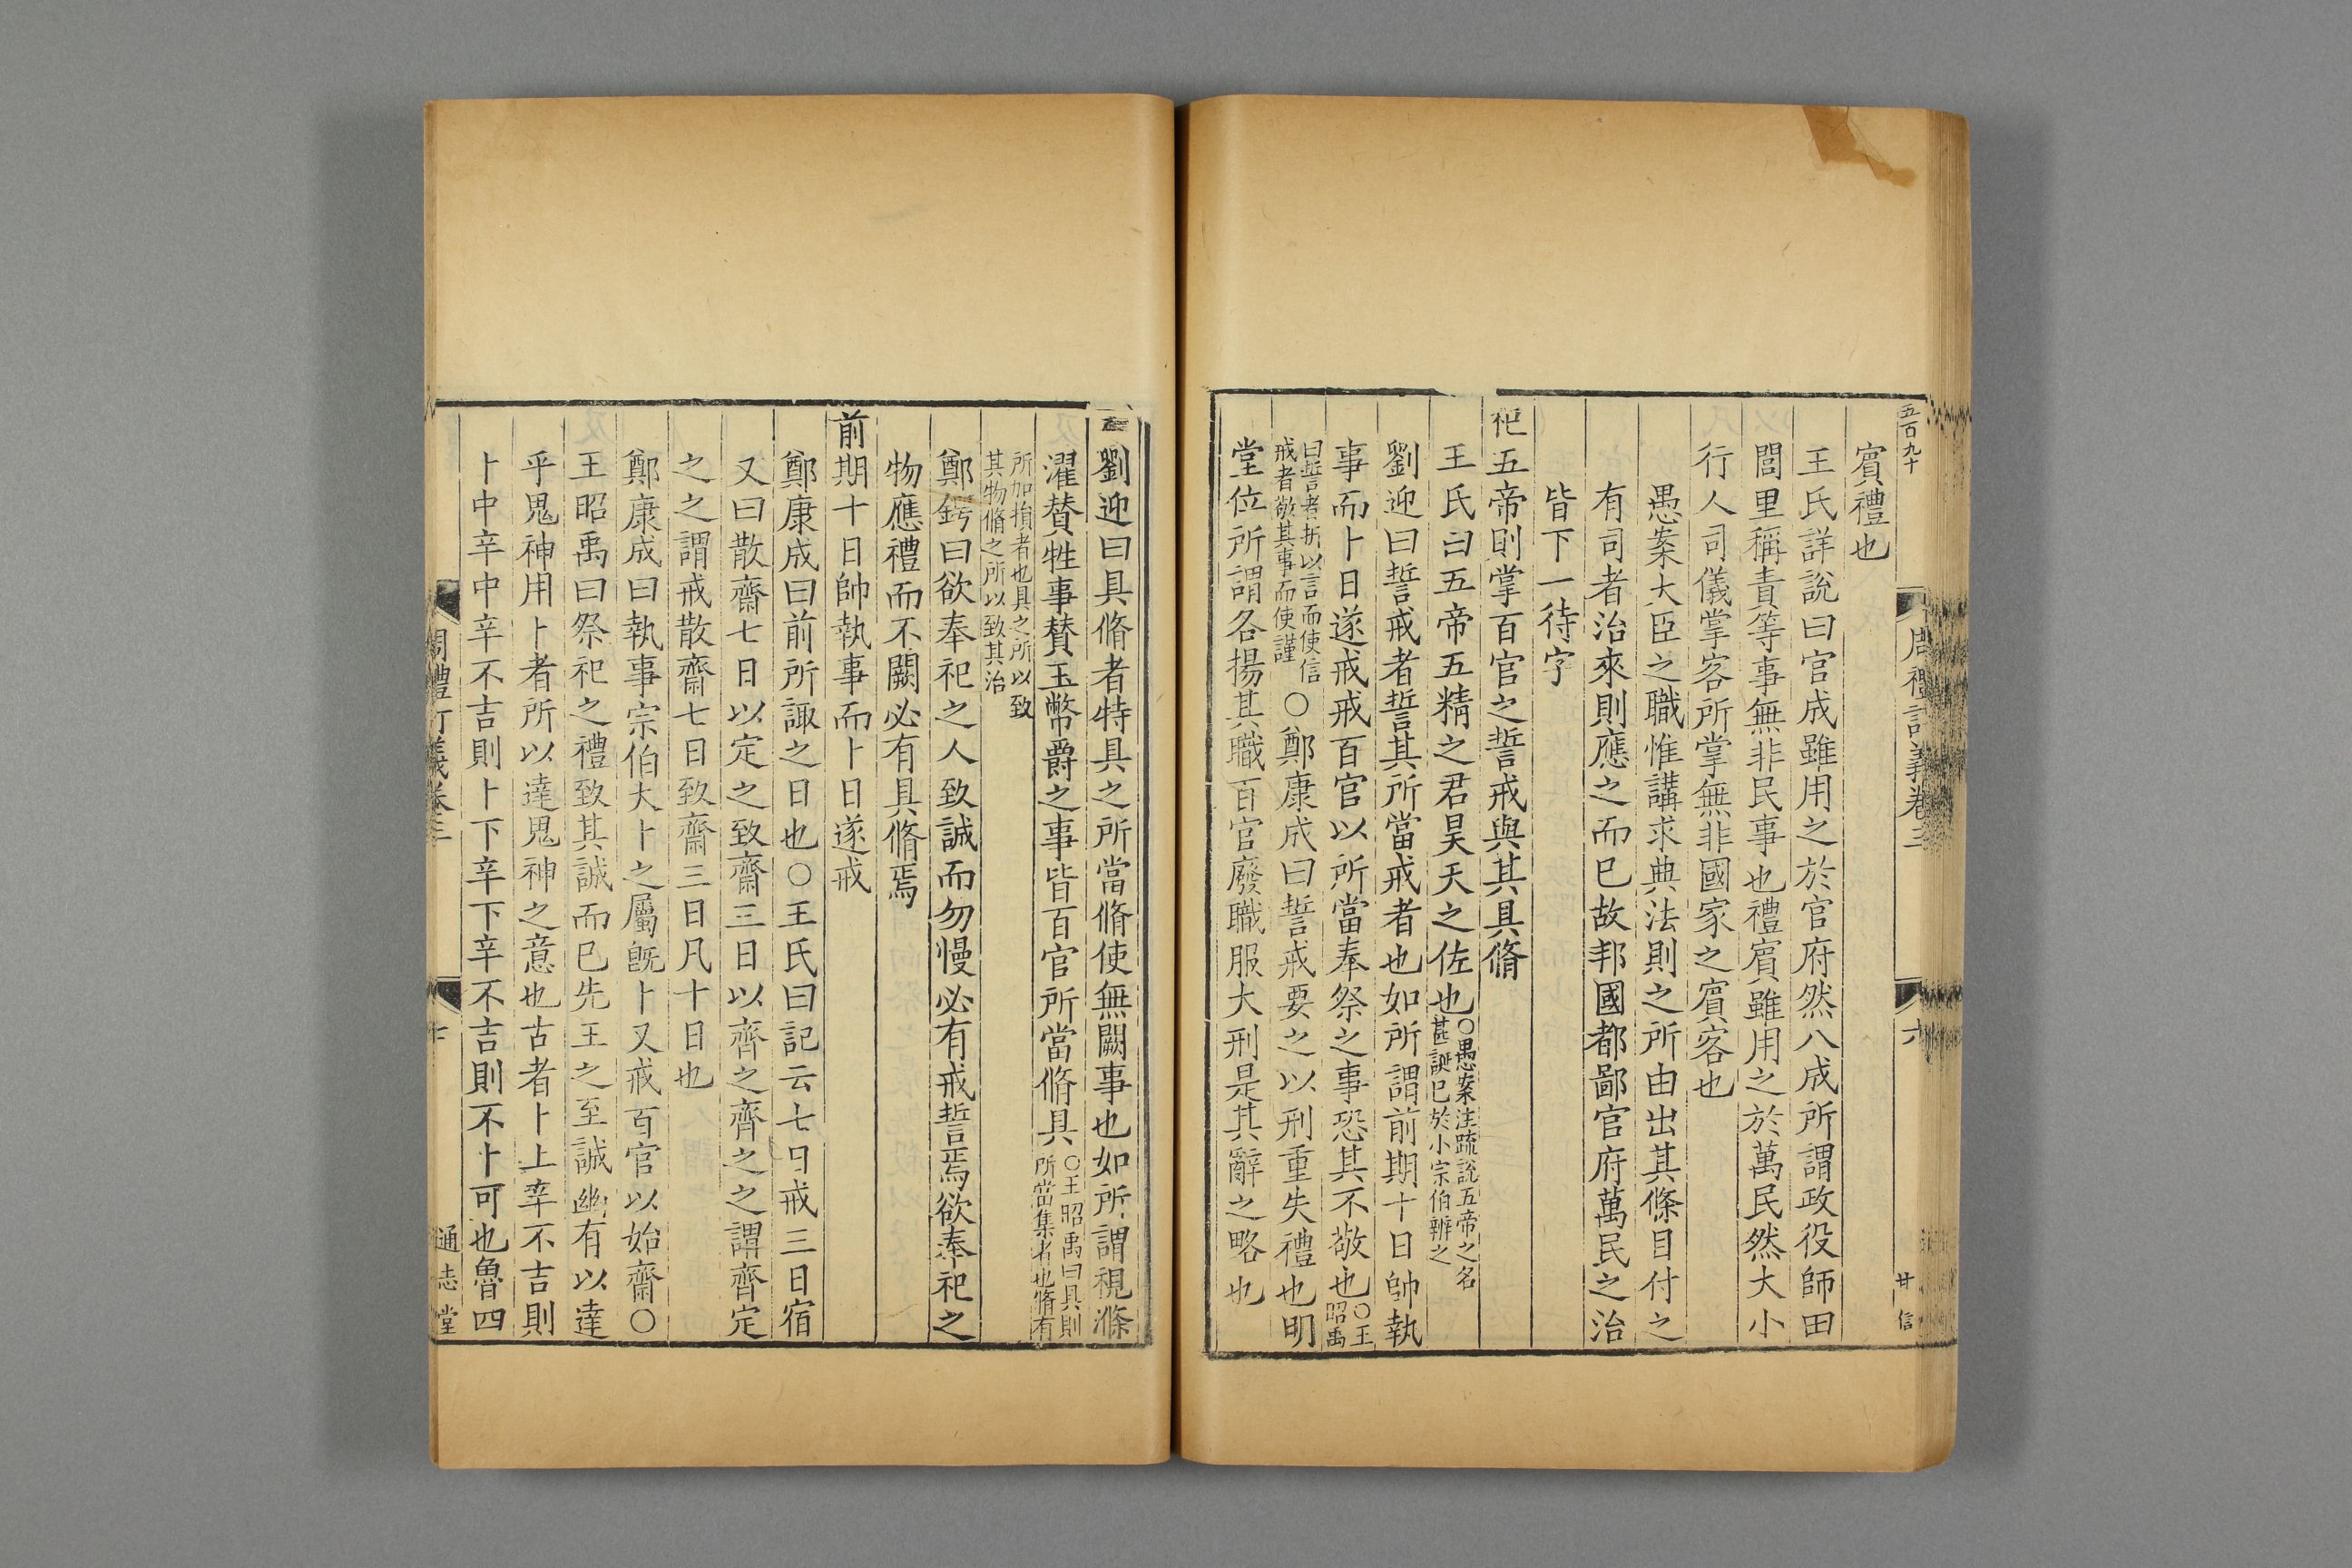 五百九十
周禮訂義卷三
六
甘信
賔禮也
王氏詳說曰官成雖用之於官府然八成所謂政役師田
閭里稱責等事無非民事也禮賔雖用之於萬民然大小
行人司儀掌客所掌無非國家之賔客也
愚案大臣之職惟講求典法則之所由出其條目付之
有司者治來則應之而已故邦國都鄙官府萬民之治
皆下一待字
祀五帝則掌百官之誓戒與其具脩
王氏曰五帝五精之君昊天之佐也○愚案注疏說五帝之名甚誕已於小宗伯辨之
劉迎曰誓戒者誓其所當戒者也如所謂前期十日帥執
事而卜日遂戒戒百官以所當奉祭之事恐其不敬也○王昭禹
曰誓者折以言而使信戒者敬其事而使謹○鄭康成曰誓戒要之以刑重失禮也明
堂位所謂各揚其職百官廢職服大刑是其辭之略也
劉迎曰具脩者特具之所當脩使無闕事也如所謂視滌
濯賛牲事賛玉幣爵之事皆百官所當脩具○王昭禹曰具則所當集者也脩有
所加損者也具之所以致其物脩之所以致其治
鄭鍔曰欲奉祀之人致誠而勿慢必有戒誓焉欲奉祀之
物應禮而不闕必有具脩焉
前期十日帥執事而卜日遂戒
鄭康成曰前所諏之日也○王氏曰記云七日戒三日宿
又曰散齋七日以定之致齋三日以齊之齊之之謂齊定
之之謂戒散齋七日致齋三日凡十日也
鄭康成曰執事宗伯大卜之屬旣卜又戒百官以始齋○
王昭禹曰祭祀之禮致其誠而已先王之至誠幽有以達
乎鬼神用卜者所以達鬼神之意也古者卜上辛不吉則
卜中辛中辛不吉則卜下辛下辛不吉則不卜可也魯四
周禮訂義卷三
通志堂